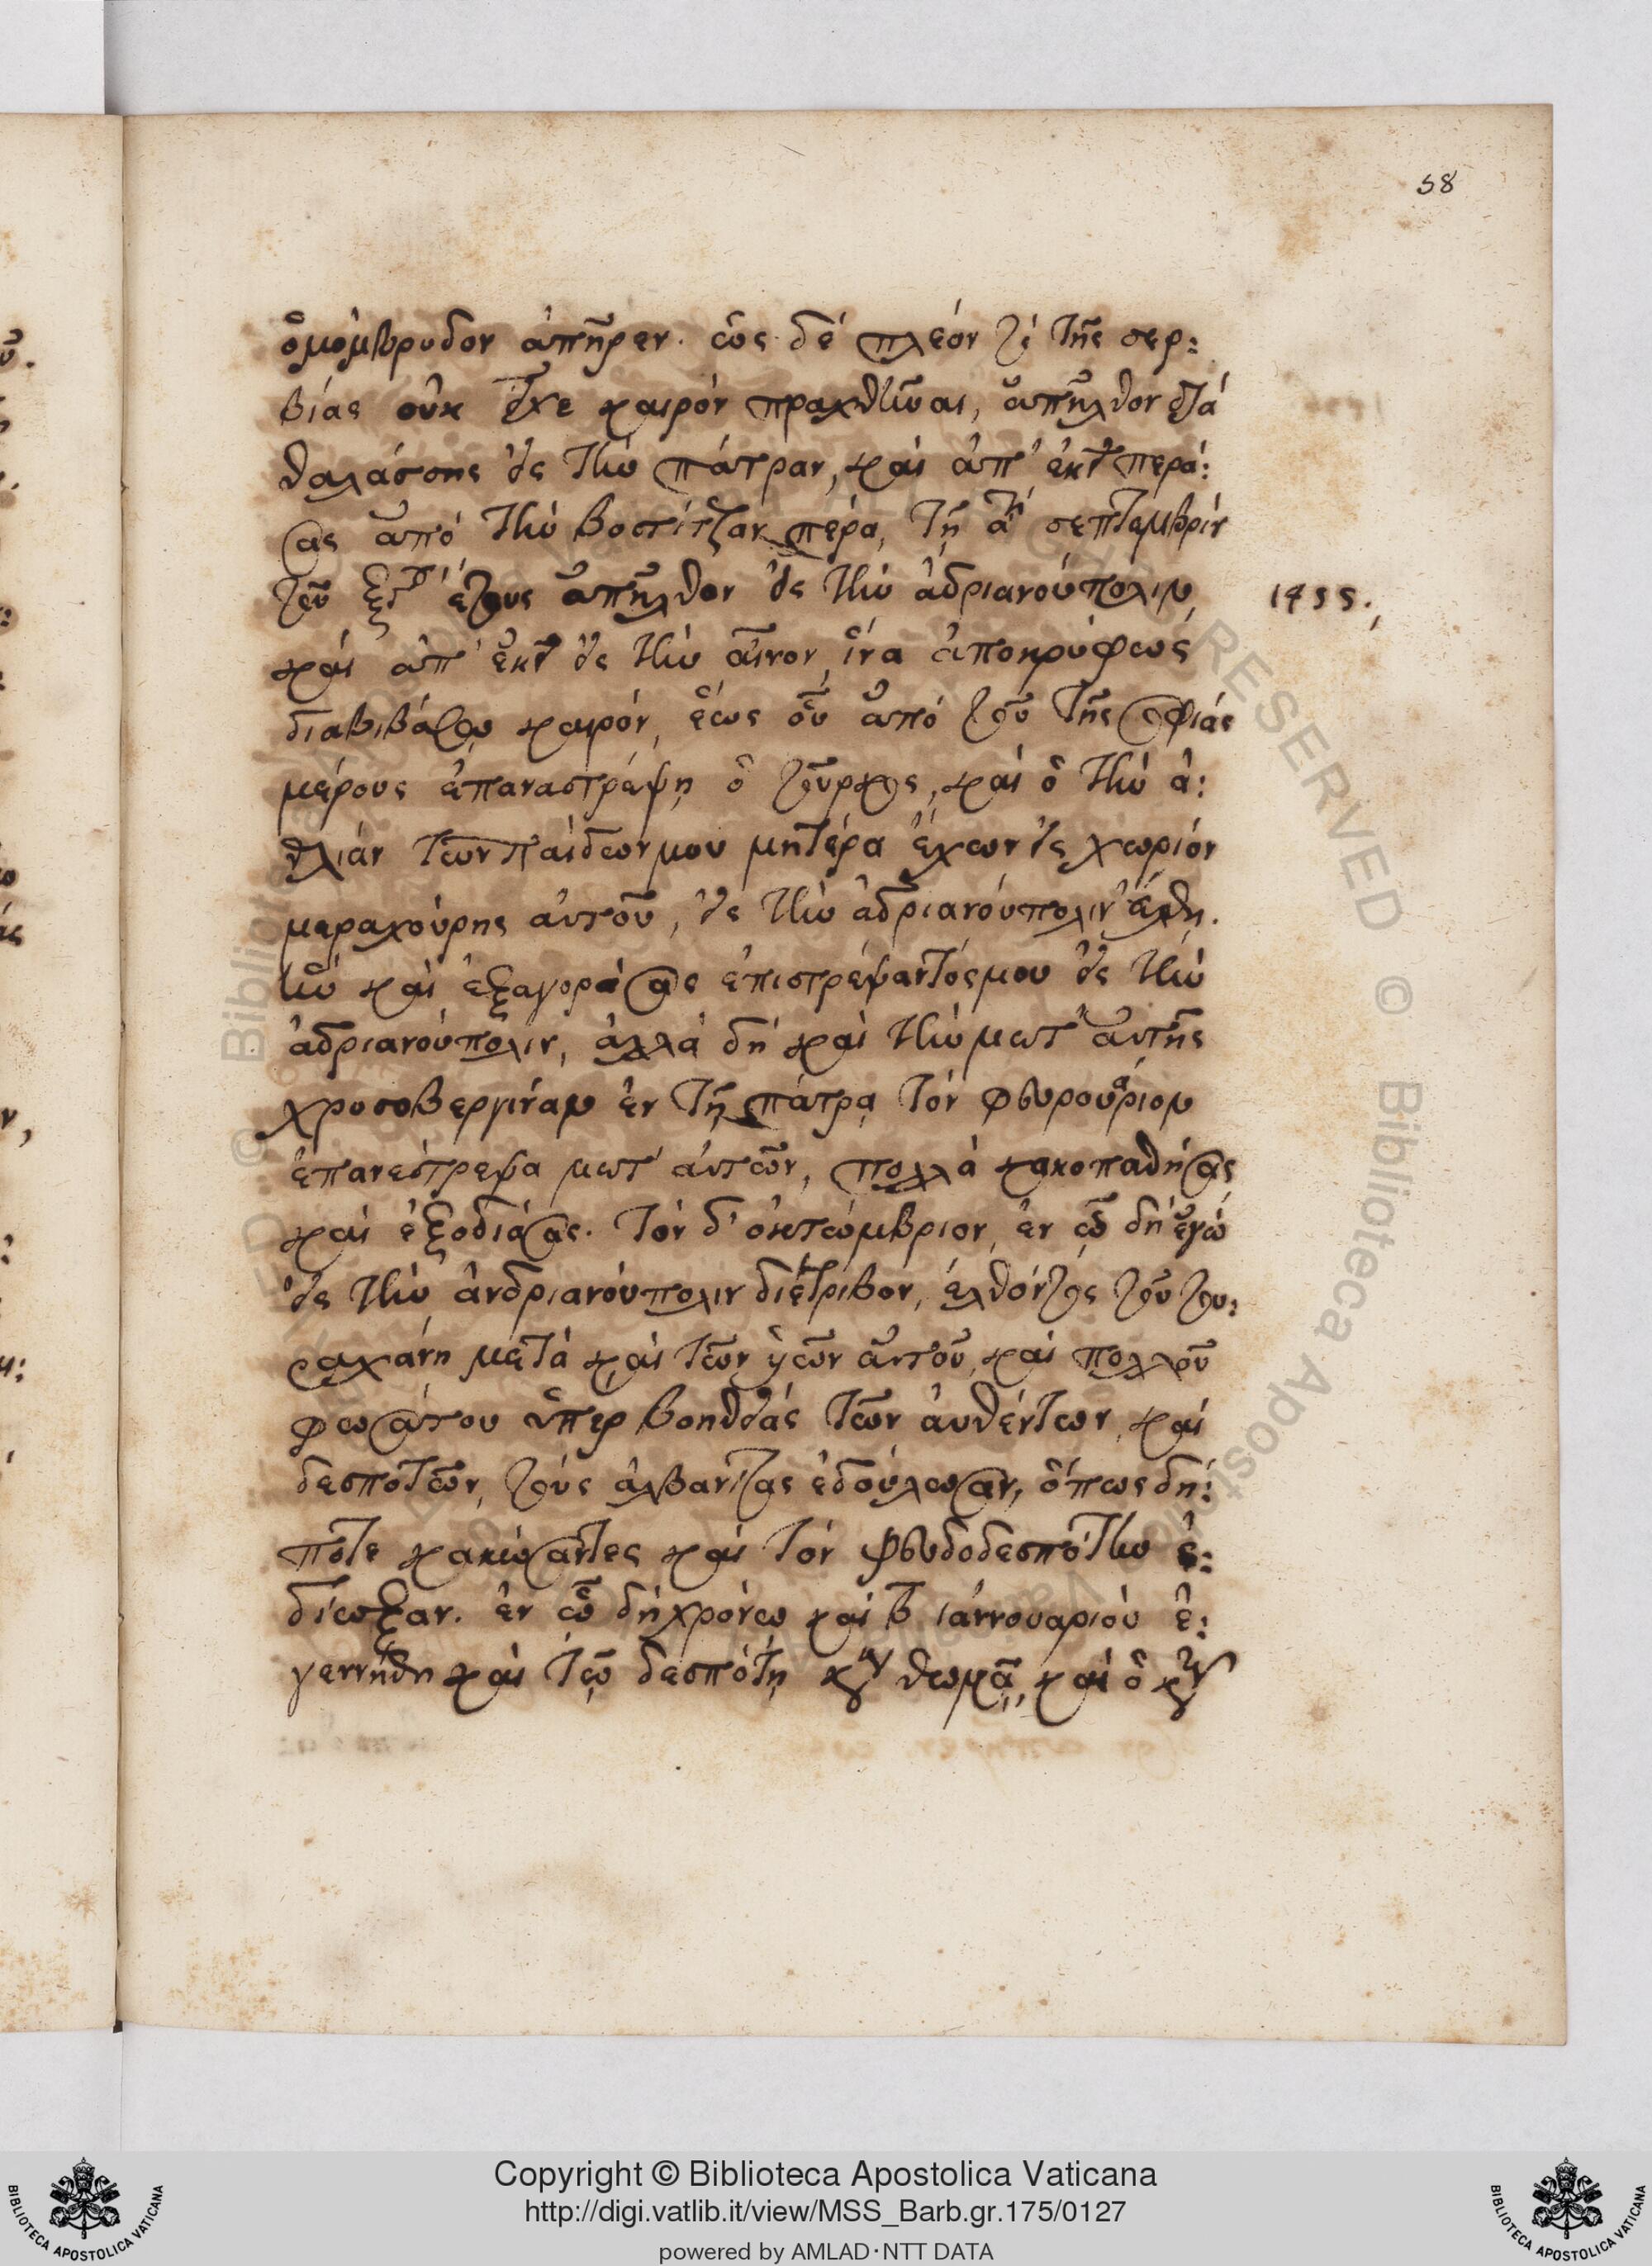 58
ὁμόμβρυδον ἀπῆρεν. ὡς δέ πλέον τί τῆς σερ:
βίας οὐκ εἶχε καιρόν πραχθῆναι, ἀπῆλθον διά
θαλάσσης εἰς τήν πάτραν, καί ἀπ' ἐκεῖ περά:
σας ἀπό τήν βοστίτζαν πέρα, τῇ α^η σεπτεμβρίου
τοῦ ξδ^ου ἔτους ἀπῆλθον εἰς τήν ἀδριανούπολιν,
1455.,
καί ἀπ' ἐκεῖ εἰς τήν αἶνον, ἵνα ἀποκρύφως
διαβιβάσω καιρόν, ἕως οὗ ἀπό τοῦ τῆς σοφιάς
μέρους ἐπαναστρέψῃ ὁ τοῦρκος, καί ὁ τήν ἀ:
θλιάν τῶν παίδων μου μητέρα ἔχων εἰς χωρίον
μεραχούρης αὐτοῦ, εἰς τήν ἀδριανούπολιν ἔλθῃ.
ἥν καί ἐξαγοράσας ἐπιστρέψαντός μου εἰς τήν
ἀδριανούπολιν, ἀλλά δή καί τήν μετ' αὐτῆς
χρυσοβεργίναν ἐν τῇ πάτρᾳ τόν φευρουάριον
ἐπανέστρεψα μετ' αὐτῶν, πολλά κακοπαθήσας
καί ἐξοδιάσας. τόν δ' ὀκτώμβριον, ἐν ᾧ δή ἐγώ
εἰς τήν ἀνδριανούπολιν διέτριβον, ἐλθόντος τοῦ του:
ραχάνη μετά καί τῶν ὑῶν αὐτοῦ, καί πολλοῦ
φωσάτου ὑπερ βοηθείας τῶν αὐθέντων, καί
δεσποτῶν, τούς ἀλβανίτας ἐδούλωσαν, ὅπως δή:
ποτε κακώσαντες καί τόν ψευδοδεσπότην ἐ:
δίωξαν. ἐν ᾧ δή χρόνω καί τοῦ ἰαννουαρίου ἐ:
γεννήθη καί τῷ δεσπότῃ κὺρ θωμᾷ, καί ὁ κὺρ
Copyright © Biblioteca Apostolica Vaticana
http://digi.vatlib.it/view/MSS_Barb.gr.175/0127
powered by AMLAD·NTT DATA
BIBLIOTECA APOSTOLICA VATICANA
BIBLIOTECA APOSTOLICA VATICANA